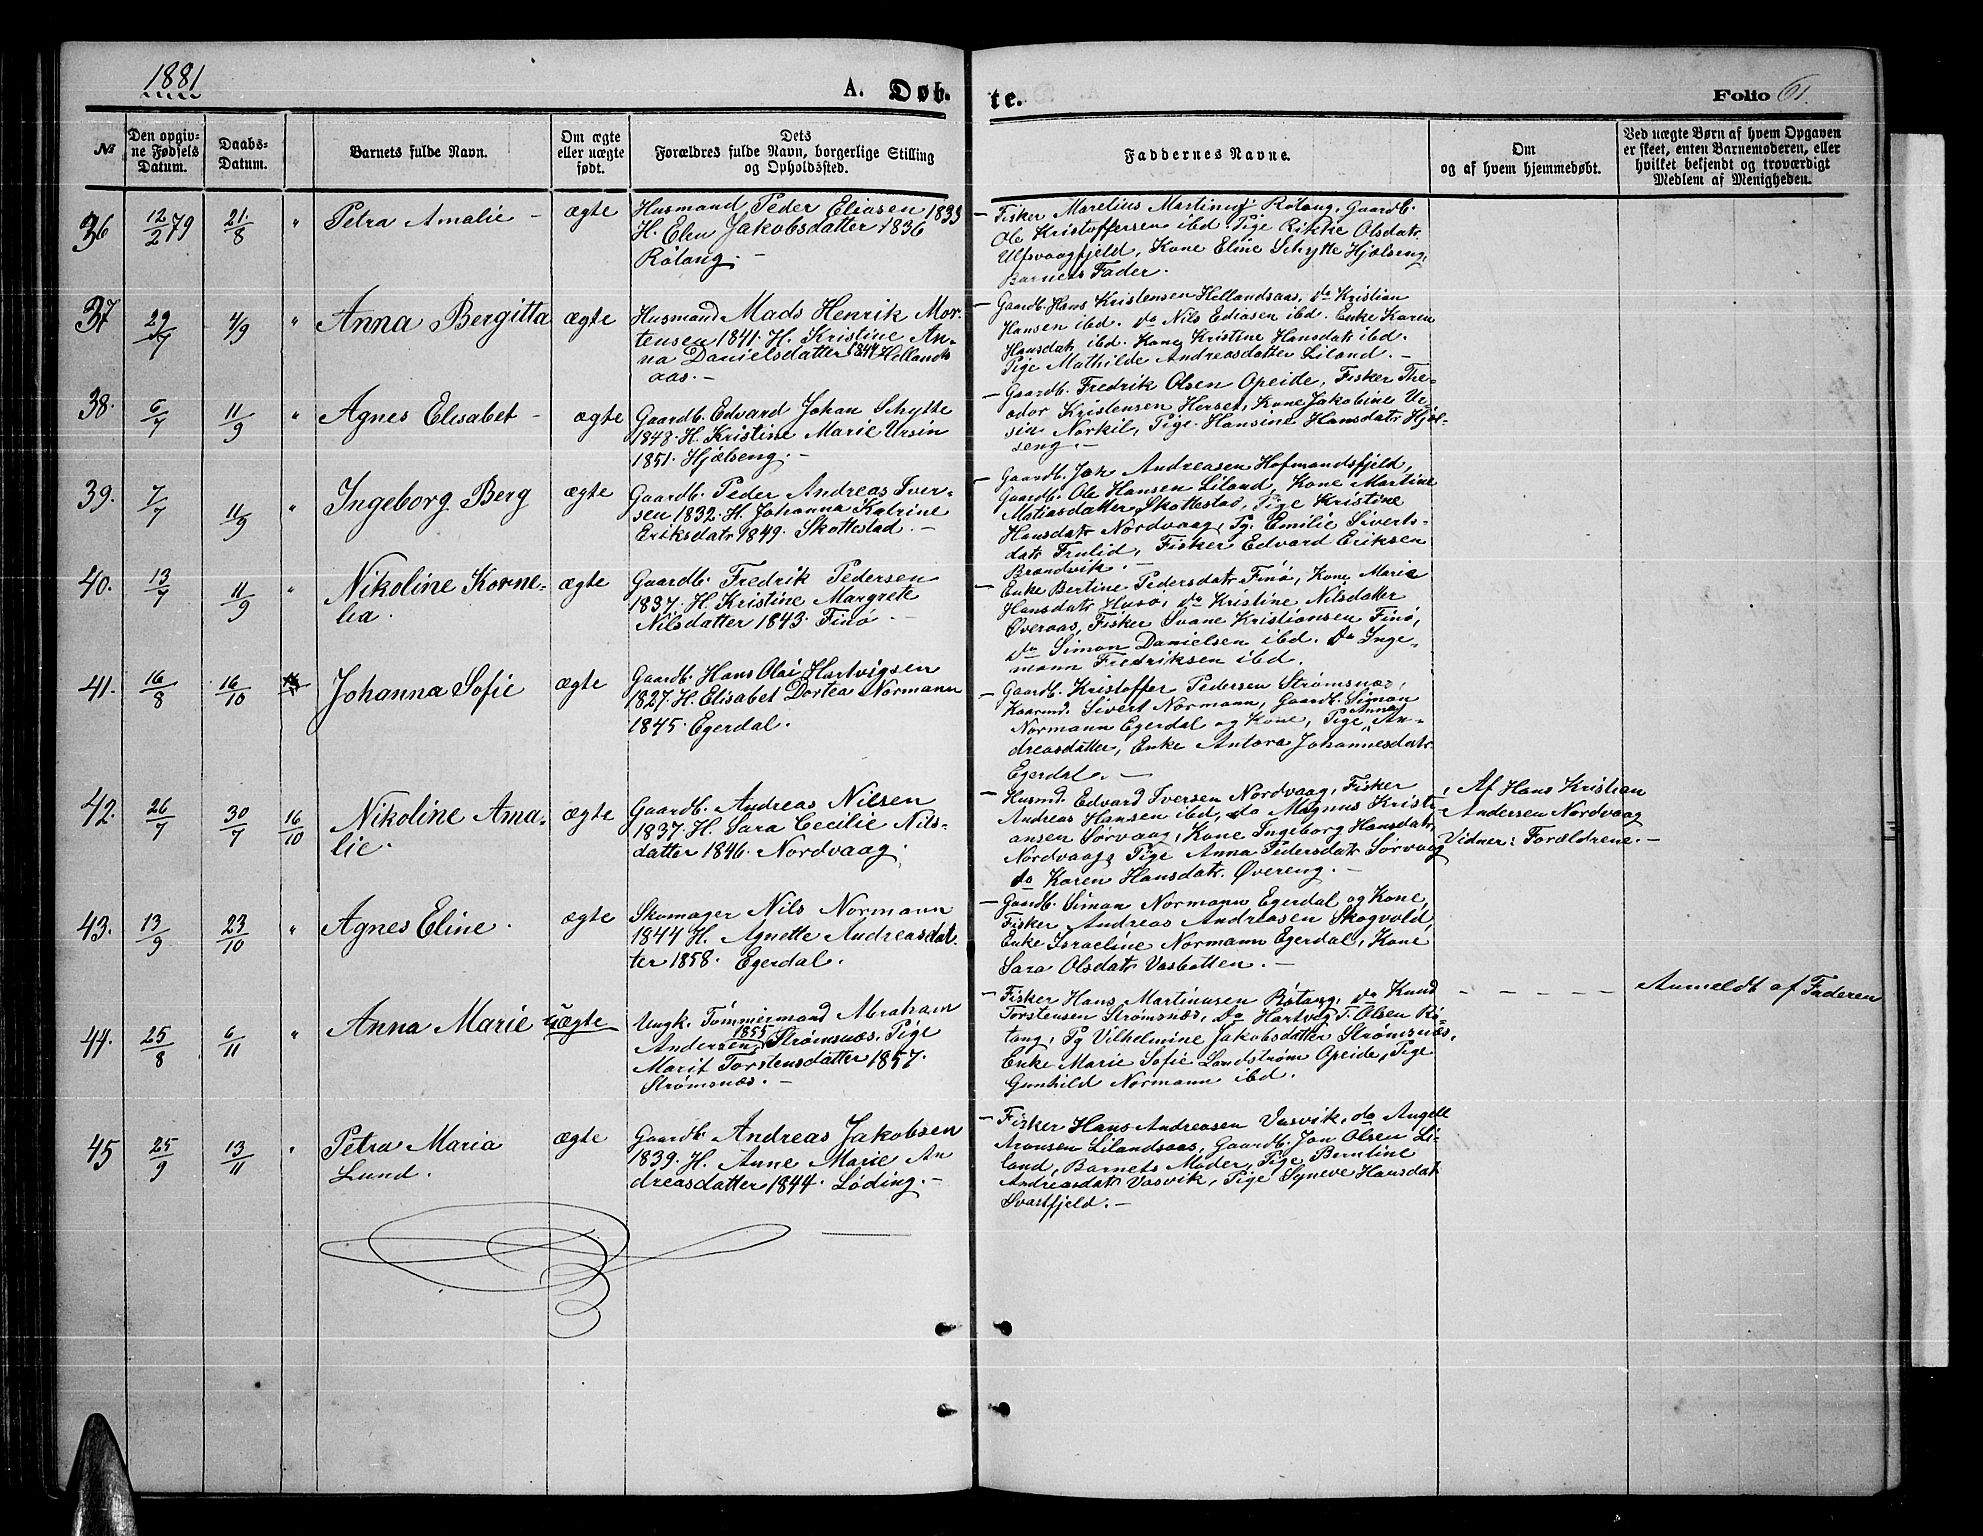 1881
A. Døb-
te.
Folio 61.
№
Den opgiv-
ne Fødsels
Datum.
Daabs-
Datum.
Barnets fulde Navn.
Om ægte
eller uægte
født.
Dets
Forældres fulde Navn, borgerlige Stilling
og Opholdssted.
Faddernes Navne.
Om
og af hvem hjemmedøbt.
Ved uægte Børn af hvem Opgaven
er skeet, enten Barnemoderen, eller
hvilket bekjendt og troværdigt
Medlem af Menigheden.
36 12/2 79 21/8 " Petra Amalie - ægte
Husmand Peder Eliasen 1833
H. Elen Jakobsdatter 1836
Rotang. -
- Fisker Marelius Martinus Rotang, Gaardb.
Ole Kristoffersen ibd. Pige Rikke Olsdatr
Ulfsvaagfjeld, Kone Eline Schytte Hjolseng,
Barnets Fader.
37 29/7 4/9 " Anna Bergitta ægte
Husmand Mads Henrik Mor-
tensen 1841. H. Kristine An-
na Danielsdatter 1844 Hellands
aas. -
- Gaardb. Hans Kristensen Hellandsaas, do Kristian
Hansen ibd. do Nils Ediasen ibd. Enke Karen
Hansdatr ibd. Kone Kristine Hansdatr ibd.
Pige Mathilde Andreasdatter Liland. -
38. 6/7 11/9 " Agnes Elisabet - ægte
Gaardb. Edvard Johan Schytte
1848. H. Kristine Marie Ursin
1851. Hjolseng. -
- Gaardb. Fredrik Olsen Opeide, Fisker The-
odor Kristensen Herset, Kone Jakobine Ur-
sin Norkil, Pige Hansine Hansdatr Hjol-
seng. -
39. 7/7 11/9 " Ingeborg Berg ægte
Gaardb. Peder Andreas Iver-
sen 1832. H. Johanna Katrine
Eriksdatr 1849. Skottestad. -
- Gaardb. Jak Andreasen Hofmandsfjeld,
Gaardb. Ole Hansen Liland, Kone Martine
Matiasdatter Skottestad, Pige Kristine
Hansdatr Nordvaag, Pg. Emilie Siverts-
datr Frulid, Fisker Edvard Eriksen
Brandvik. -
40. 13/7 11/9 " Nikoline Korne-
lia. ægte
Gaardb. Fredrik Pedersen
1837. H. Kristine Margrete
Nilsdatter 1843. Finø. -
- Enke Bertine Pedersdatr Finø, Kone Marie
Hansdatr Husø, do Kristine Nilsdatter
Øveraas, Fisker Svane Kristiansen Finø,
do Simon Danielsen ibd. do Inge-
mann Fredriksen ibd.
41. 16/8 16/10 Johanna Sofie ægte
Gaardb. Hans Olai Hartvigsen
1827. H. Elisabet Dortea Normann
1845. Egerdal.
- Gaardb. Kristoffer Pedersen Strømsnæs,
Kaarmd. Sivert Normann, Gaardb. Simon
Normann Egerdal og Kone, Pige Anna An-
dreasdatter, Enke Antora Johannesdatr
Egerdal. -
42. 26/7 30/7 16/10 Nikoline Ama-
lie. ægte
Gaardb. Andreas Nilsen
1837. H. Sara Cecilie Nils-
datter 1846. Nordvaag.
- Husmd. Edvard Iversen Nordvaag, Fisker
Andreas Hansen ibd, do Magnus Kristi-
ansen Sørvaag, Kone Ingeborg Hansdatr,
Nordvaag, Pige Anna Pedersdatr Sørvaag
do Karen Hansdatr. Øvereng. -
, Af Hans Kristian
Andersen Nordvaag
Vidner: Forældrene. -
43. 13/9 23/10 " Agnes Eline. ægte
Skomager Nils Normann
1844 H. Agnette Andreasdat-
ter 1858. Egerdal.
- Gaardb. Simon Normann Egerdal og Kone,
Fisker Andreas Andreasen Skogvold,
Enke Israeline Normann Egerdal, Kone
Sara Olsdatr Vasbotten. -
44. 25/8 6/11 " Anna Marie uægte
Ungk. Tømmermand Abraham
Andersen 1855 Strømsnæs. Pige
Marit Torstensdatter 1857.
Strømsnæs. -
- Fisker Hans Martinusen Rotang, do Knud
Torstensen Strømsnæs, do Hartvig T. Olsen Ro-
tang, Pg Vilhelmine Jakobsdatter Strømsnæs,
Enke Marie Sofie Landstrøm Opeide, Pige
Gunhild Normann ibd.
- - - - - Anmeldt af Faderen
45 25/9 13/11 " Petra Maria
Lund. ægte
Gaardb. Andreas Jakobsen
1839. H. Anne Marie An
dreasdatter 1844. Løding. -
- Fisker Hans Andreasen Vasvik, do Angell
Aronsen Lilandsaas, Gaardb. Jon Olsen Li-
land, Barnets Moder, Pige Berntine
Andreasdatr Vasvik, Pige Syneve Hansdatr
Svartfjeld. -